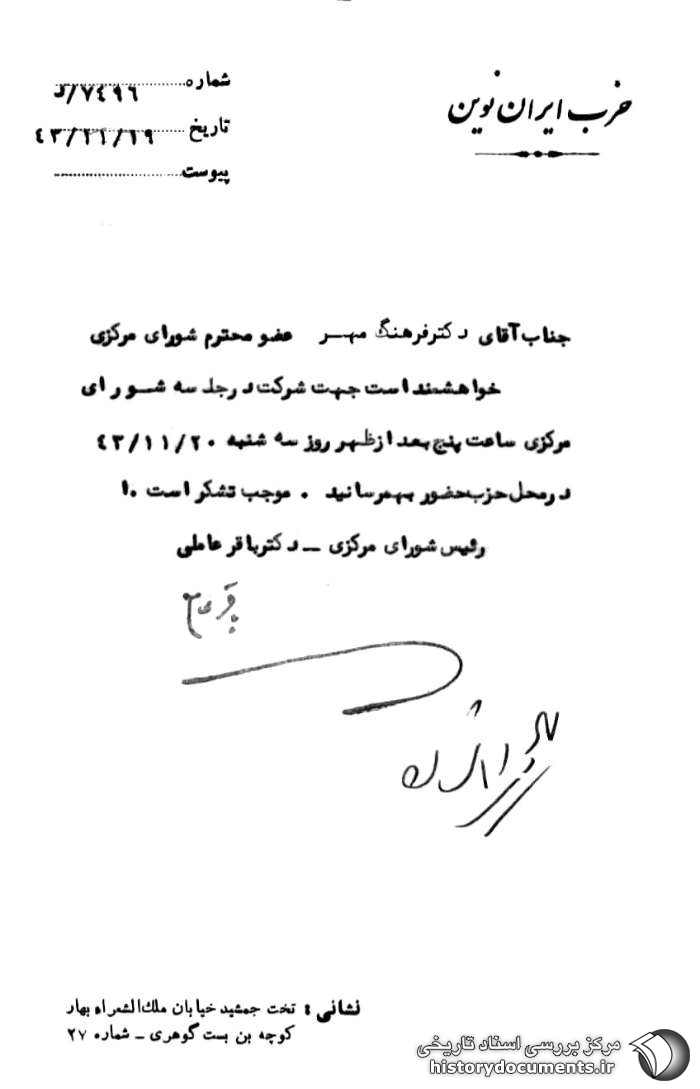 حزب ایران نوین
شماره ۷۴۹۶/د
تاریخ ۴۳/۱۱/۱۹
پیوست
جناب آقای دکتر فرهنگ مهر عضو محترم شورای مرکزی
خواهشمند است جهت شرکت در جلسه شورای
مرکزی ساعت پنج بعد از ظهر روز سه شنبه ۴۳/۱۱/۲۰
در محل حزب حضور بهمرسانید . موجب تشکر است .
رئیس شورای مرکزی ـ دکتر باقر عاملی
نشانی : تخت جمشید خیابان ملک‌الشعراء بهار
کوچه بن بست گوهری ـ شماره ۲۷
مرکز بررسی اسناد تاریخی
historydocuments.ir